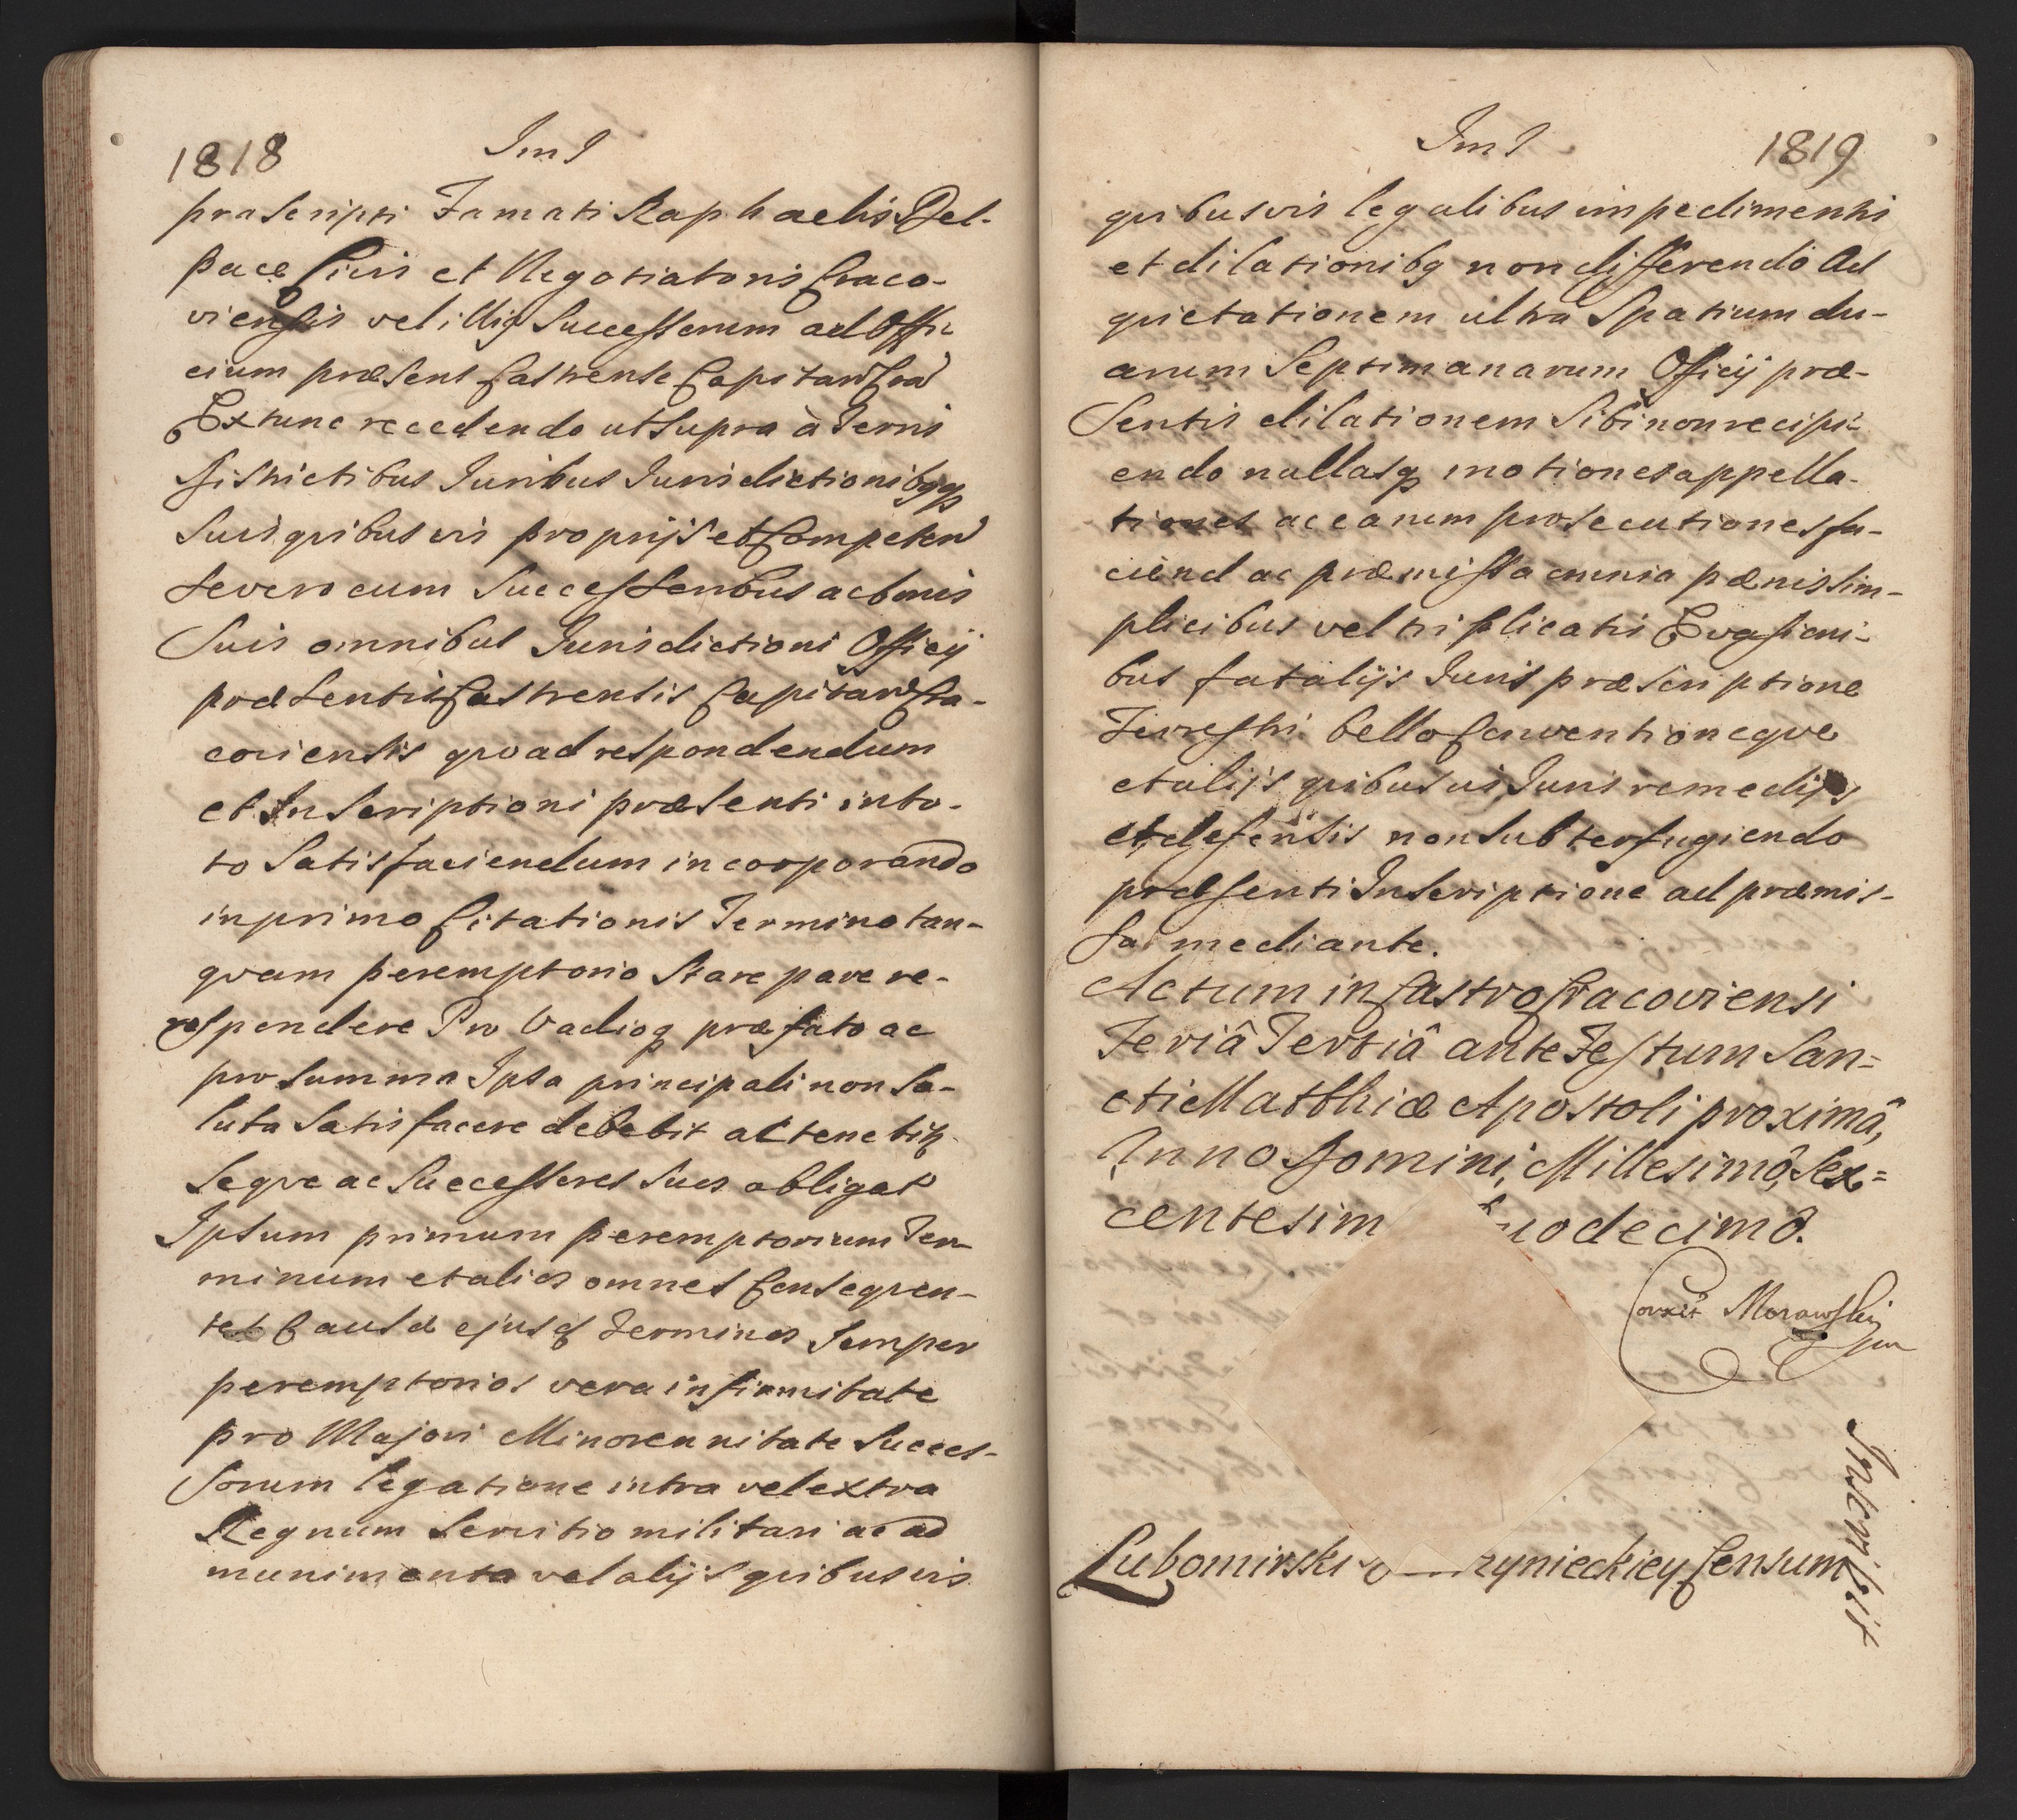 1818
Im I
præscripti Famati Raphaelis Del-
pace Civis et Negotiatoris Craco-
viensis vel illiq Successorum ad Offi-
cium præsens Castrense Capitan Cra
Extunc recedendo ut supra à Terris
Districtibus Iuribus Iurisdictionibqq
Suis quibusvis proprijs et Competen
Severo cum Successoribus ac bonis
Suis omnibus Iurisdictioni Officij
præsentis Castrensis Capitan Cra-
coviensis quoad respondendum
et Inscriptioni præsenti in to-
to Satisfaciendum incorporando
in primo Citationis Termino tan-
quam peremptorio Stare pare re-
respondere Pro Vadioq præfato ac
pro summa Ipsa principali non so-
luta Satisfacere debebit ac tenebit
Seque ac Successores suos obligat
Ipsum primum peremptorium Ter-
minum et alios omnes Consequen-
tes Causæ ejusq Terminos Semper
peremptorios vera infirmitate
pro Majori Minorennitate Succes-
sorum legatione intra vel extra
Regnum Servitio militari ac ad
munimenta vel alijs quibusvis
Im I
1819
quibusvis legalibus impedimentis
et dilationibq non differendo Ad
quietationem ultra Spatium du-
arum Septimanarum Officij præ-
sentis dilationem Sibi non recipi-
endo nullasq motiones appella-
tiones ac earum prosecutiones fa-
ciend ac præmissa omnia pænis sim-
plicibus vel triplicatis Evasioni-
bus fatalijs Iuris præscriptione
Terrestri bello Conventioneque
et alijs quibusvis Iuris remedijs
et defensis non subterfugiendo
præsenti Inscriptione ad præmis-
sa mediante.
Actum in Castro Cracoviensi
Feriâ Tertiâ ante Festum San=
cti Matthiæ Apostoli proximâ,
Anno Domini, Millesimô, Sex=
centesim uodecimô.
Corrxit Morawski
Lubomirski rzynieckiey Censum
Inscribit